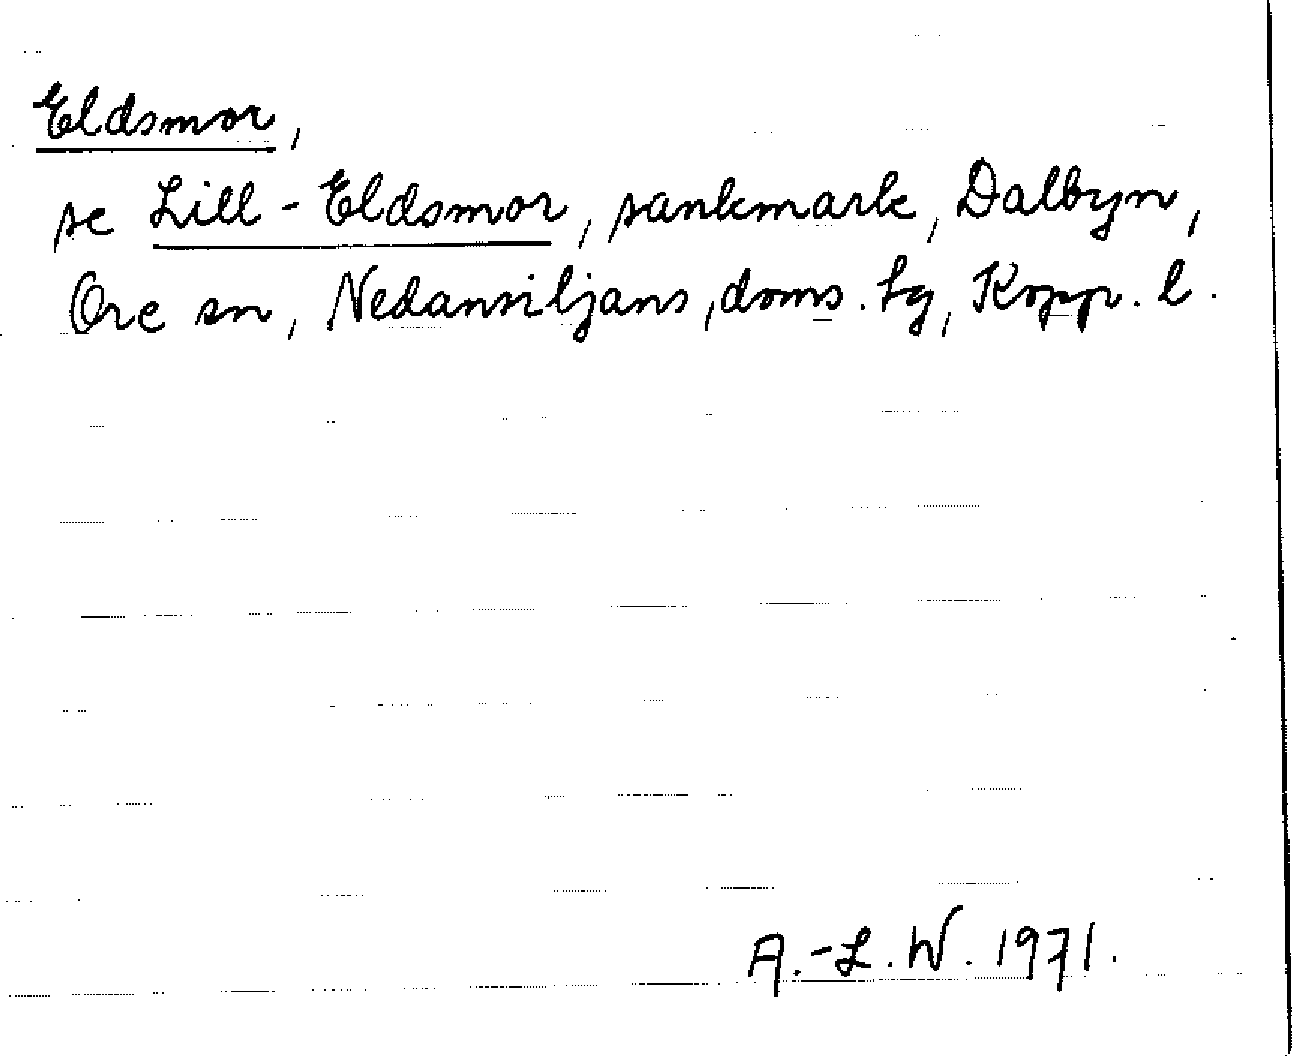 Eldsmor,
se Lill-Eldsmor, sankmark, Dalbyn,
Ore sn, Nedansiljans, doms. tg, Kopp. l.
A.-L.W. 1971.